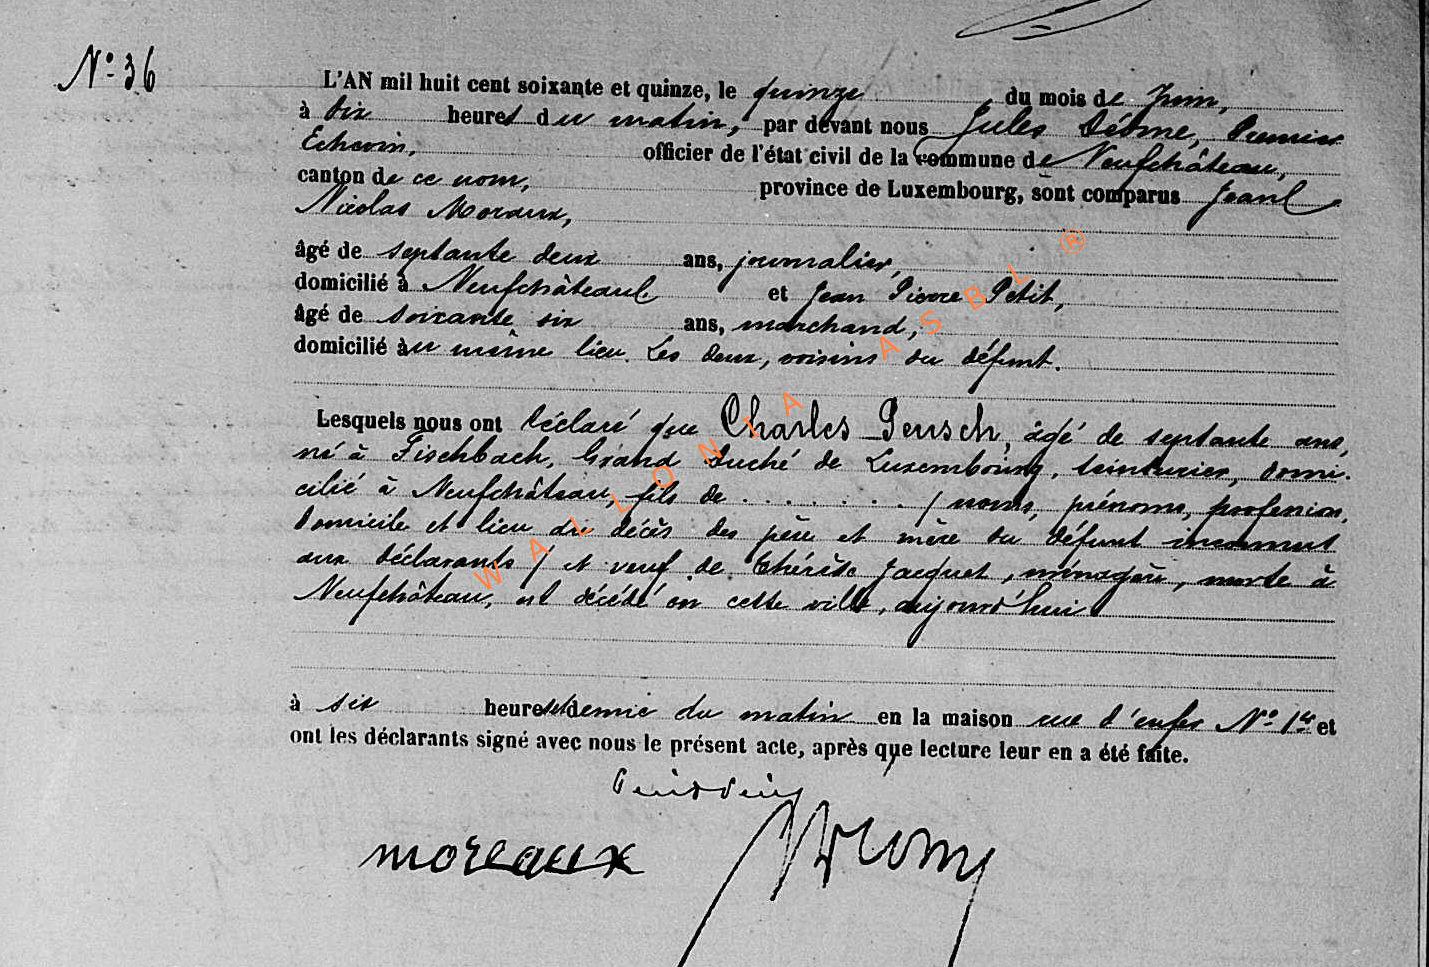 N° 36
L'AN mil huit cent soixante et quinze, le quinze du mois de Juin,
à dix heures du matin, par devant nous Jules Premier
Echevin, officier de l'état civil de la commune de Neufchâteau,
canton de ce nom, province de Luxembourg, sont comparus Jean
Nicolas Moraux,
âgé de septante deux ans, journalier,
domicilié à Neufchâteau et Jean Pierre Petit,
âgé de soixante six ans, marchand,
domicilié au même lieu. Les deux, voisins du défunt.
Lesquels nous ont déclaré que Charles Peusch, âgé de septante ans,
né à Fischbach, Grand Duché de Luxembourg, teinturier, domi-
cilié à Neufchâteau, fils de . . . . . . . / noms, prénoms, profession,
domicile et lieu du décès des père et mère du défunt inconnus
aux déclarants / et veuf de Thérèse Jacquet, ménagère, morte à
Neufchâteau, est décédé en cette ville, aujourd'hui
à six heures et demie du matin en la maison rue d'enfer N° 1er et
ont les déclarants signé avec nous le présent acte, après que lecture leur en a été faite.
moreaux
WALLONIA ASBL ®